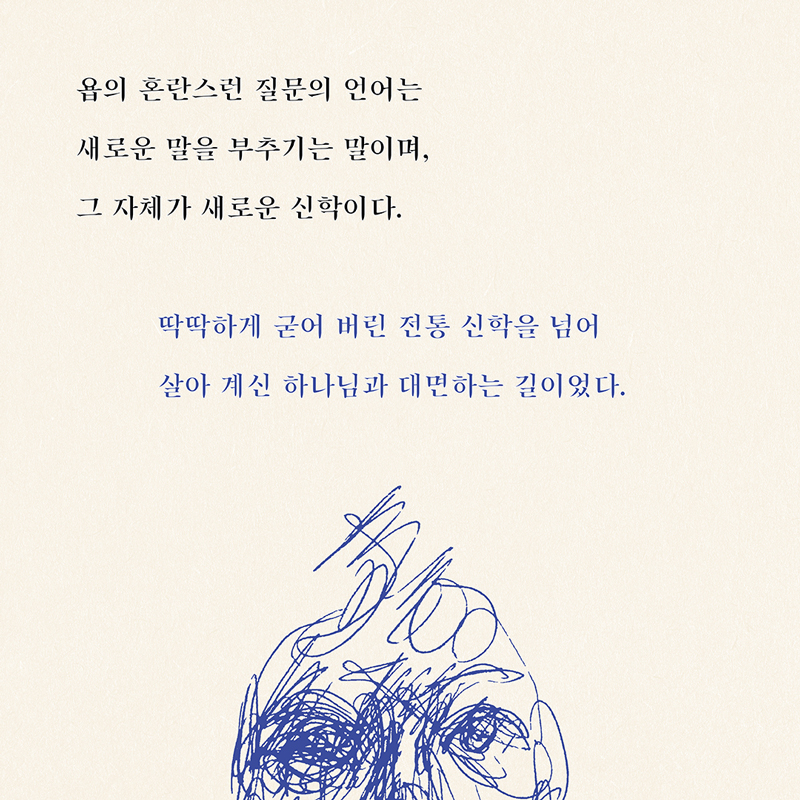 욥의 혼란스런 질문의 언어는
새로운 말을 부추기는 말이며,
그 자체가 새로운 신학이다.
딱딱하게 굳어 버린 전통 신학을 넘어
살아 계신 하나님과 대면하는 길이었다.